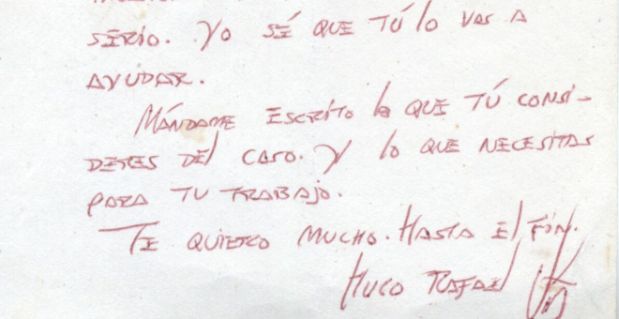 serio. Yo sé que tú lo vas a
ayudar.
Mándame escrito lo que tú consi-
deres del caso. Y lo que necesitas
para tu trabajo.
Te quiero mucho. Hasta el fin.
Hugo Rafael